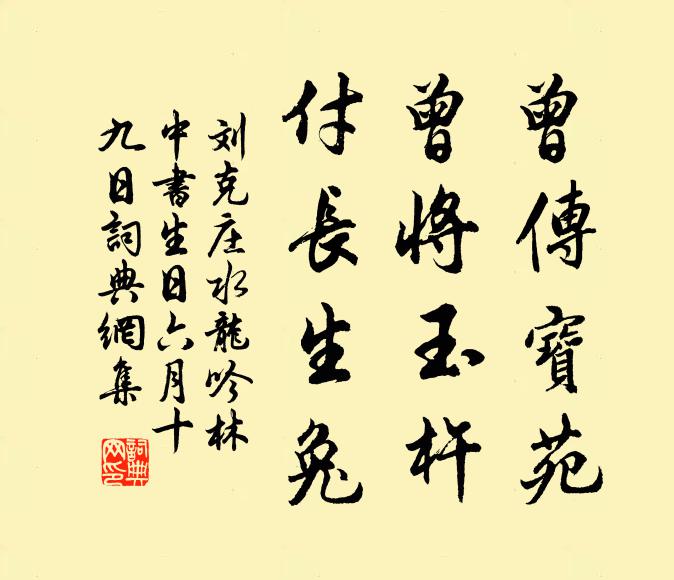 曾傳寶苑
曾將玉杵
付長生兔
刘克庄水龍吟林
中書生日六月十
九日詞典網集
詞典网印